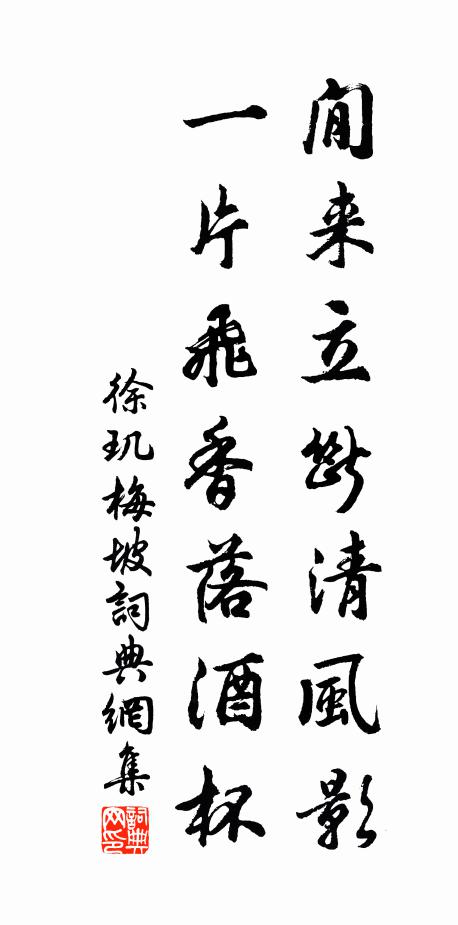 閒来立斷清風影
一片飛香落酒杯
徐璣梅坡詞典網集
詞典网印